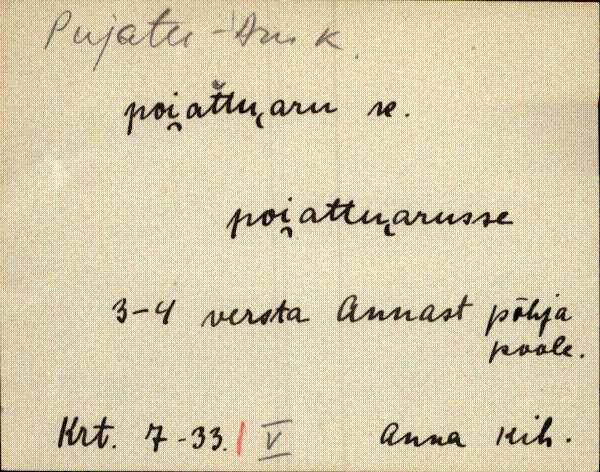 Pujatu-Aru k.
poi̯ăttu̜aru se.
poi̯attu̜arusse
3-4 versta Annast põhja
poole.
Krt. 7-33. | V Anna kih.